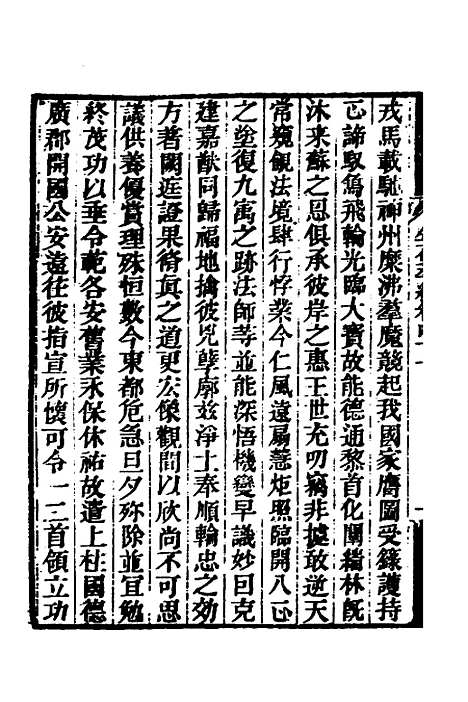 戎馬載馳神州糜沸羣魔競起我國家膺圖受籙護持
正諦馭象飛輪光臨大寶故能德通黎首化闡緇林旣
沐来蘇之恩俱承彼岸之惠王世充叨竊非據敢逆天
常窺覦法境肆行悖業今仁風遠扇慧炬照臨開八正
之塗復九寓之跡法師等並能深悟機變早識妙因克
建嘉猷同歸福地擒彼兇孽廓兹淨土奉順輸忠之効
方著闕庭證果脩真之道更宏像觀聞以欣尚不可思
議供養優賞理殊恒數今東都危急旦夕殄除並宜勉
終茂功以垂令範各安舊業永保休祐故遣上柱國德
廣郡開國公安遠往彼指宣所懷可令一二首領立功